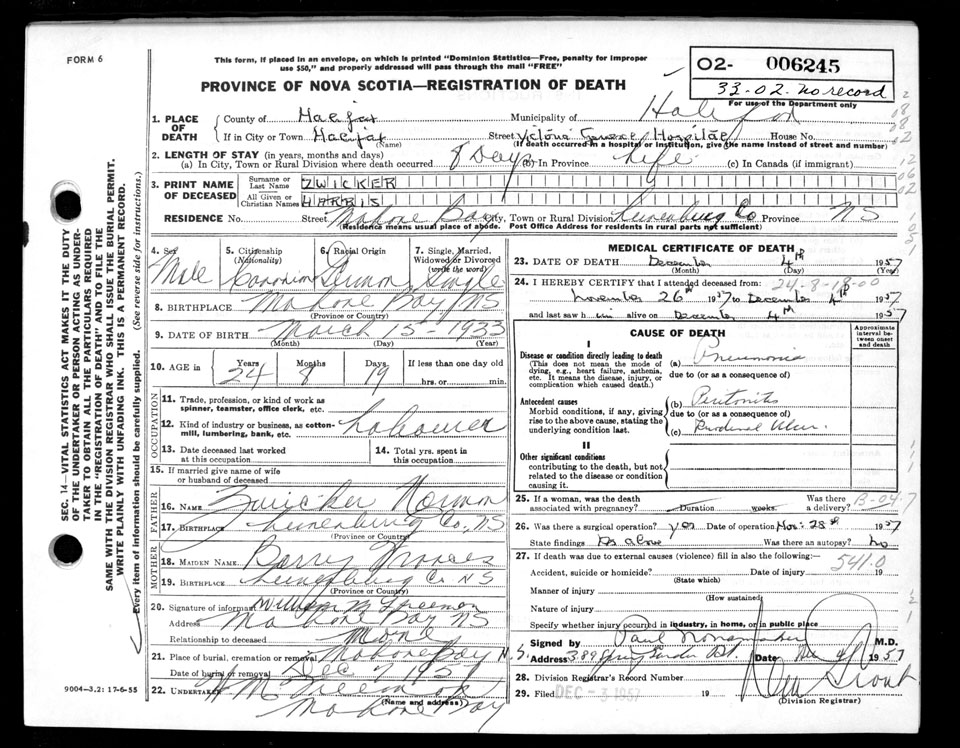 FORM 6
This form, if placed in an envelope, on which is printed "Dominion Statistics—Free, penalty for improper
use $50," and properly addressed will pass through the mail "FREE"
PROVINCE OF NOVA SCOTIA—REGISTRATION OF DEATH
02- 006245
33-02. no record
For use of the Department only
1. PLACE OF DEATH
County of Halifax Municipality of Halifax
If in City or Town Halifax (Name) Street Victoria General Hospital House No.
(If death occurred in a hospital or institution, give the name instead of street and number)
2. LENGTH OF STAY (in years, months and days)
(a) In City, Town or Rural Division where death occurred 8 Days (b) In Province Life (c) In Canada (if immigrant)
3. PRINT NAME OF DECEASED
Surname or Last Name ZWICKER
All Given or Christian Names HARRIS
RESIDENCE No. Street Mahone Bay City, Town or Rural Division Lunenburg Co Province NS
(Residence means usual place of abode. Post Office Address for residents in rural parts not sufficient)
4. Sex Male
5. Citizenship (Nationality) Canadian
6. Racial Origin German
7. Single, Married, Widowed or Divorced (write the word) Single
8. BIRTHPLACE Mahone Bay, NS
(Province or Country)
9. DATE OF BIRTH March 15 - 1933
(Month) (Day) (Year)
10. AGE in Years 24 Months 8 Days 19 If less than one day old
hrs. or min.
OCCUPATION
11. Trade, profession, or kind of work as
spinner, teamster, office clerk, etc.
12. Kind of industry or business, as cotton-
mill, lumbering, bank, etc. Labourer
13. Date deceased last worked
at this occupation
14. Total yrs. spent in
this occupation
15. If married give name of wife
or husband of deceased
FATHER
16. NAME Zwicker Norman
17. BIRTHPLACE Lunenburg Co, NS
(Province or Country)
MOTHER
18. MAIDEN NAME Barry
19. BIRTHPLACE Lunenburg Co NS
(Province or Country)
20. Signature of informant William M Freeman
Address Mahone Bay NS
Relationship to deceased None
21. Place of burial, cremation or removal Mahone Bay N.S.
Date of burial or removal Dec 7 1957
22. UNDERTAKER
Mahone Bay
(Name and address)
9004-3.2: 17-6-55
SEC. 14—VITAL STATISTICS ACT MAKES IT THE DUTY
OF THE UNDERTAKER OR PERSON ACTING AS UNDER-
TAKER TO OBTAIN ALL THE PARTICULARS REQUIRED
IN THE "REGISTRATION OF DEATH" AND TO FILE THE
SAME WITH THE DIVISION REGISTRAR WHO SHALL ISSUE THE BURIAL PERMIT.
WRITE PLAINLY WITH UNFADING INK. THIS IS A PERMANENT RECORD.
Every item of information should be carefully supplied. (See reverse side for instructions.)
MEDICAL CERTIFICATE OF DEATH
23. DATE OF DEATH December 4th 1957
(Month) (Day) (Year)
24. I HEREBY CERTIFY that I attended deceased from: 24-8-19-00
November 26th 1957 to December 4th 1957
and last saw h im alive on December 4th 1957
CAUSE OF DEATH
Approximate interval between onset and death
I
Disease or condition directly leading to death
(This does not mean the mode of
dying, e.g., heart failure, asthenia,
etc. It means the disease, injury, or
complication which caused death.)
(a) Pneumonia
due to (or as a consequence of)
Antecedent causes
Morbid conditions, if any, giving
rise to the above cause, stating the
underlying condition last.
(b) Peritonitis
due to (or as a consequence of)
(c) Duodenal Ulcer.
II
Other significant conditions
contributing to the death, but not
related to the disease or condition
causing it.
25. If a woman, was the death
associated with pregnancy? Duration weeks. Was there
a delivery? B-04-7
26. Was there a surgical operation? yes Date of operation Nov: 28th 1957
State findings As above Was there an autopsy? No
27. If death was due to external causes (violence) fill in also the following:—
541.0
Accident, suicide or homicide? Date of injury 19
(State which)
Manner of injury
(How sustained)
Nature of injury
Specify whether injury occurred in industry, in home, or in public place
Signed by Paul M.D.
Address Date Dec 4 1957
28. Division Registrar's Record Number
29. Filed DEC - 3 1957 19
(Division Registrar)